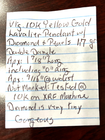 Vtg. 10K Yellow Gold
Lavalier Pendant w/
Diamond & Pearls 1.7 g
Double Dangle
Apx. 1 7/8" long
including "O" ring
Apx. 7/16" @ widest
Not Marked Tested @
10K on XRF Machine
Diamond is very tiny
Gorgeous